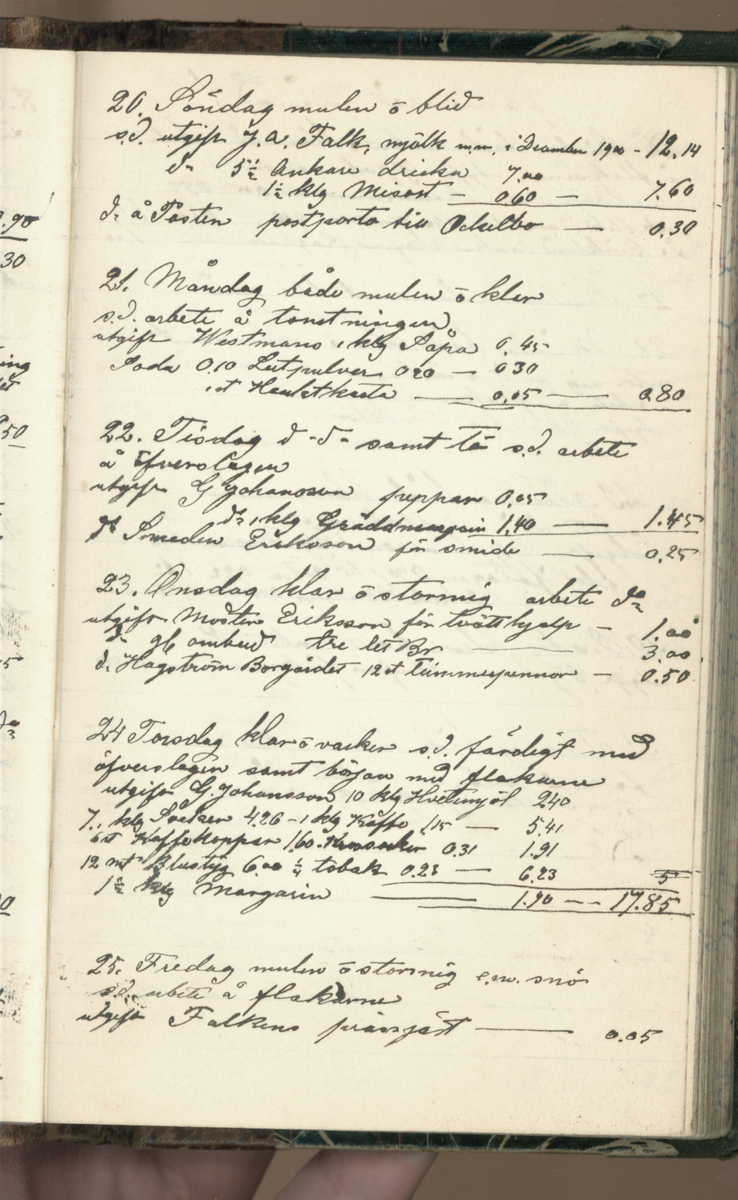 20. Söndag mulen ō blid
s.d. utgift J. A. Falk, mjölk m.m. i December 1900 - 12.14
d:o 5½ Ankare dricka 7.00
1½ klg Misost - 0.60 - 7.60
d:o å Posten postporto till Ockelbo - 0.30
21. Måndag både mulen ō klar
s.d. arbete å
utgift Westmans 1 klg Såpa 0.45
Soda 0.10 Lutpulver 0.20 - 0.30
1 st - 0.05 - 0.80
22. Tisdag d:o d:o samt s.d. arbete
å öfverslagen
utgift G Johansson peppar 0.05
d:o 1 klg 1.40 - 1.45
d:o Smeden Eriksson för smide - 0.25
23. Onsdag klar ō stormig arbete d:o
utgift Eriksson för tvätthjelp - 1.00
d:o ombud tre Br - 3.00
d:o Hagström Borgärdet 12 st Timmerspennor - 0.50
24 Torsdag klar ō vacker s.d. färdigt med
öfverslagen samt början med flakarne
utgift G. Johansson 10 klg Hvetemjöl 2.40
7., klg Socker 4.26 - 1 klg Kaffe 1.15 - 5.41
6 st Kaffekoppar 1.60. 0.31 1.91
12 mt Blustyg 6.00 ¼ tobak 0.23 - 6.23
1½ klg Margarin - 1.90 - - 17.85
25. Fredag mulen ō stormig e.m. snö
s.d. arbete å flakarne
utgift Falkens pressjäst - 0.05
0.90
30
50